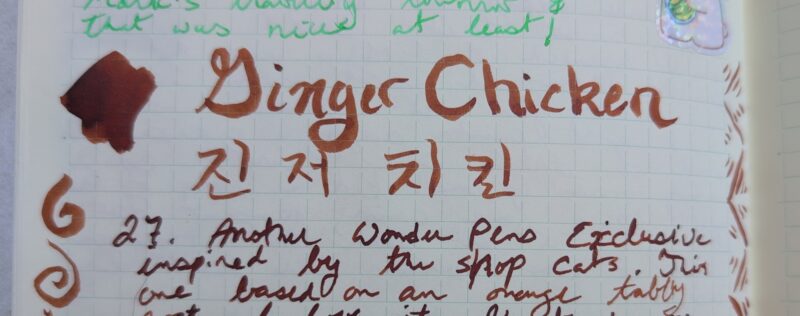 that was nice at least!
Ginger Chicken
진저 치킨
27. Another Wonder Pens Exclusive
inspired by the shop cats. This
one based on an orange tabby